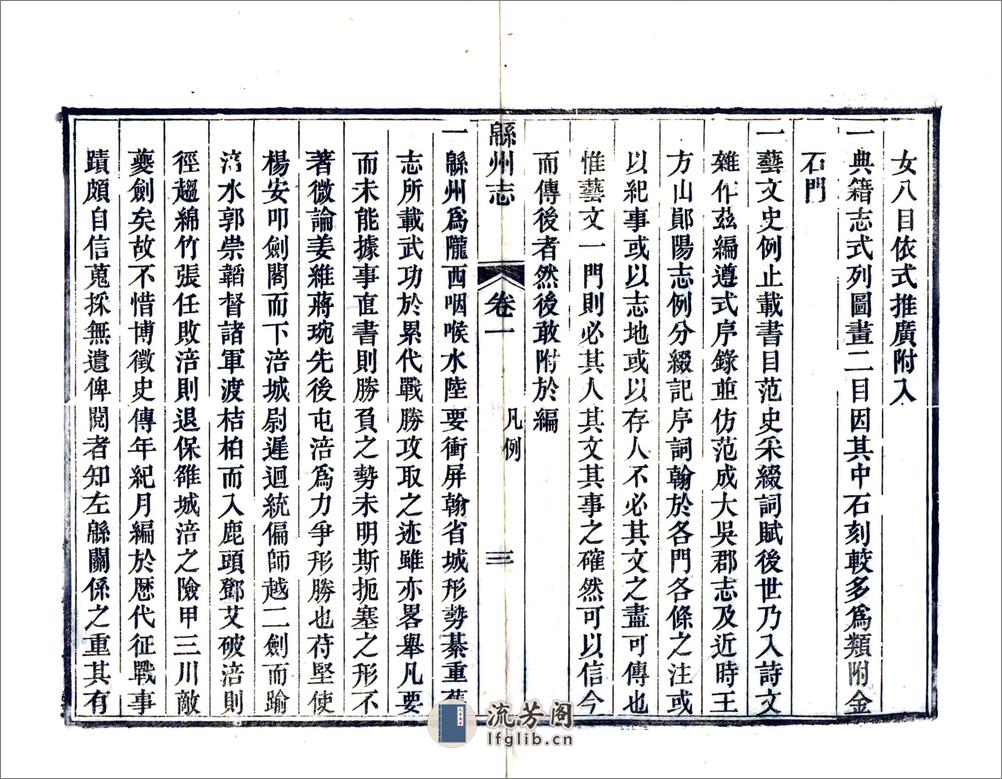 女八目依式推廣附入
一典籍志式列圖畫二目因其中石刻較多爲類附金
石門
一藝文史例止載書目范史采綴詞賦後世乃入詩文
雜作兹編遵式序錄並仿范成大吳郡志及近時王
方山鄖陽志例分綴記序詞翰於各門各條之注或
以紀事或以志地或以存人不必其文之盡可傳也
惟藝文一門則必其人其文其事之確然可以信今
而傳後者然後敢附於編
緜州志 卷一 凡例 三
一緜州爲隴西咽喉水陸要衝屏翰省城形勢綦重舊
志所載武功於累代戰勝攻取之迹雖亦畧舉凡要
而未能據事直書則勝負之勢未明斯扼塞之形不
著微論姜維蔣琬先後屯涪爲力爭形勝也苻堅使
楊安叩劍閣而下涪城尉遲迴統偏師越二劍而踰
涪水郭崇韜督諸軍渡桔柏而入鹿頭鄧艾破涪則
徑趨綿竹張任敗涪則退保雒城涪之險甲三川敵
夔劍矣故不惜博徵史傳年紀月編於歷代征戰事
蹟頗自信蒐採無遺俾閱者知左緜關係之重其有
流芳阁
lfglib.cn